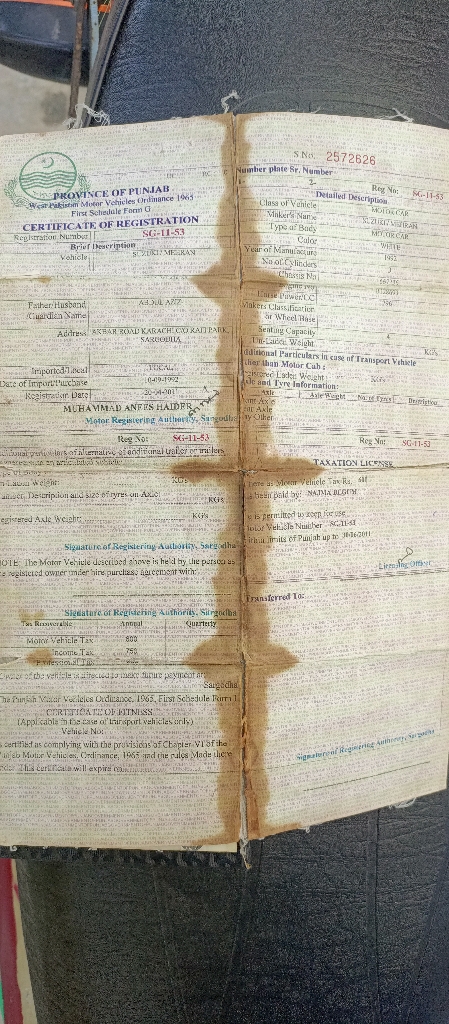 PROVINCE OF PUNJAB
West Pakistan Motor Vehicles Ordinance 1965
First Schedule Form G
CERTIFICATE OF REGISTRATION
Registration Number SG-11-53
Brief Description
Vehicle SUZUKI / MEHRAN
Father/Husband ABDUL AZIZ
/Guardian Name
Address AKBAR ROAD KARACHI,C/O RAFI PARK,
SARGODHA
Imported/Local LOCAL
Date of Import/Purchase 10-09-1992
Registration Date
MUHAMMAD ANEES HAIDER
Motor Registering Authority, Sargodha
Reg No: SG-11-53
additional particulars of alternative of additional trailer or trailers
Laden Weight KGs
Description and size of tyres on Axle: KGs
Registered Axle Weight: KGs
Signature of Registering Authority, Sargodha
NOTE: The Motor Vehicle described above is held by the person as
registered owner under hire purchase agreement with:
Signature of Registering Authority, Sargodha
Tax Recoverable Annual Quarterly
Motor Vehicle Tax 600
Income Tax 750
Professional Tax
owner of the vehicle is directed to make future payment at:
Sargodha
The Punjab Motor Vehicles Ordinance, 1965, First Schedule Form I
CERTIFICATE OF FITNESS
(Applicable in the case of transport vehicles only)
Vehicle No:
is certified as complying with the provisions of Chapter-VI of the
Motor Vehicles, Ordinance, 1965 and the rules Made there
under. This certificate will expire on
S No. 2572626
Number plate Sr. Number
1- 2-
Reg No: SG-11-53
Detailed Description
Class of Vehicle MOTOR CAR
Maker's Name SUZUKI / MEHRAN
Type of Body MOTOR CAR
Color WHITE
Year of Manufacture 1992
No of Cylinders 3
Chassis No
Horse Power/CC 796
Makers Classification
or Wheel Base
Seating Capacity 4
Un-Laden Weight KGs
Additional Particulars in case of Transport Vehicle
other than Motor Cab :
Registered Laden Weight KGs
Axle and Tyre Information:
Axle Axle Weight No. of Tyres Description
Reg No: SG-11-53
TAXATION LICENSE
Motor Vehicle Tax Rs. 600
been paid by: NAJMA BEGUM
is permitted to keep for use
Motor Vehicle Number SG-11-53
limits of Punjab up to 30/06/2011
Licensing Officer
Transferred To:
Signature of Registering Authority, Sargodha